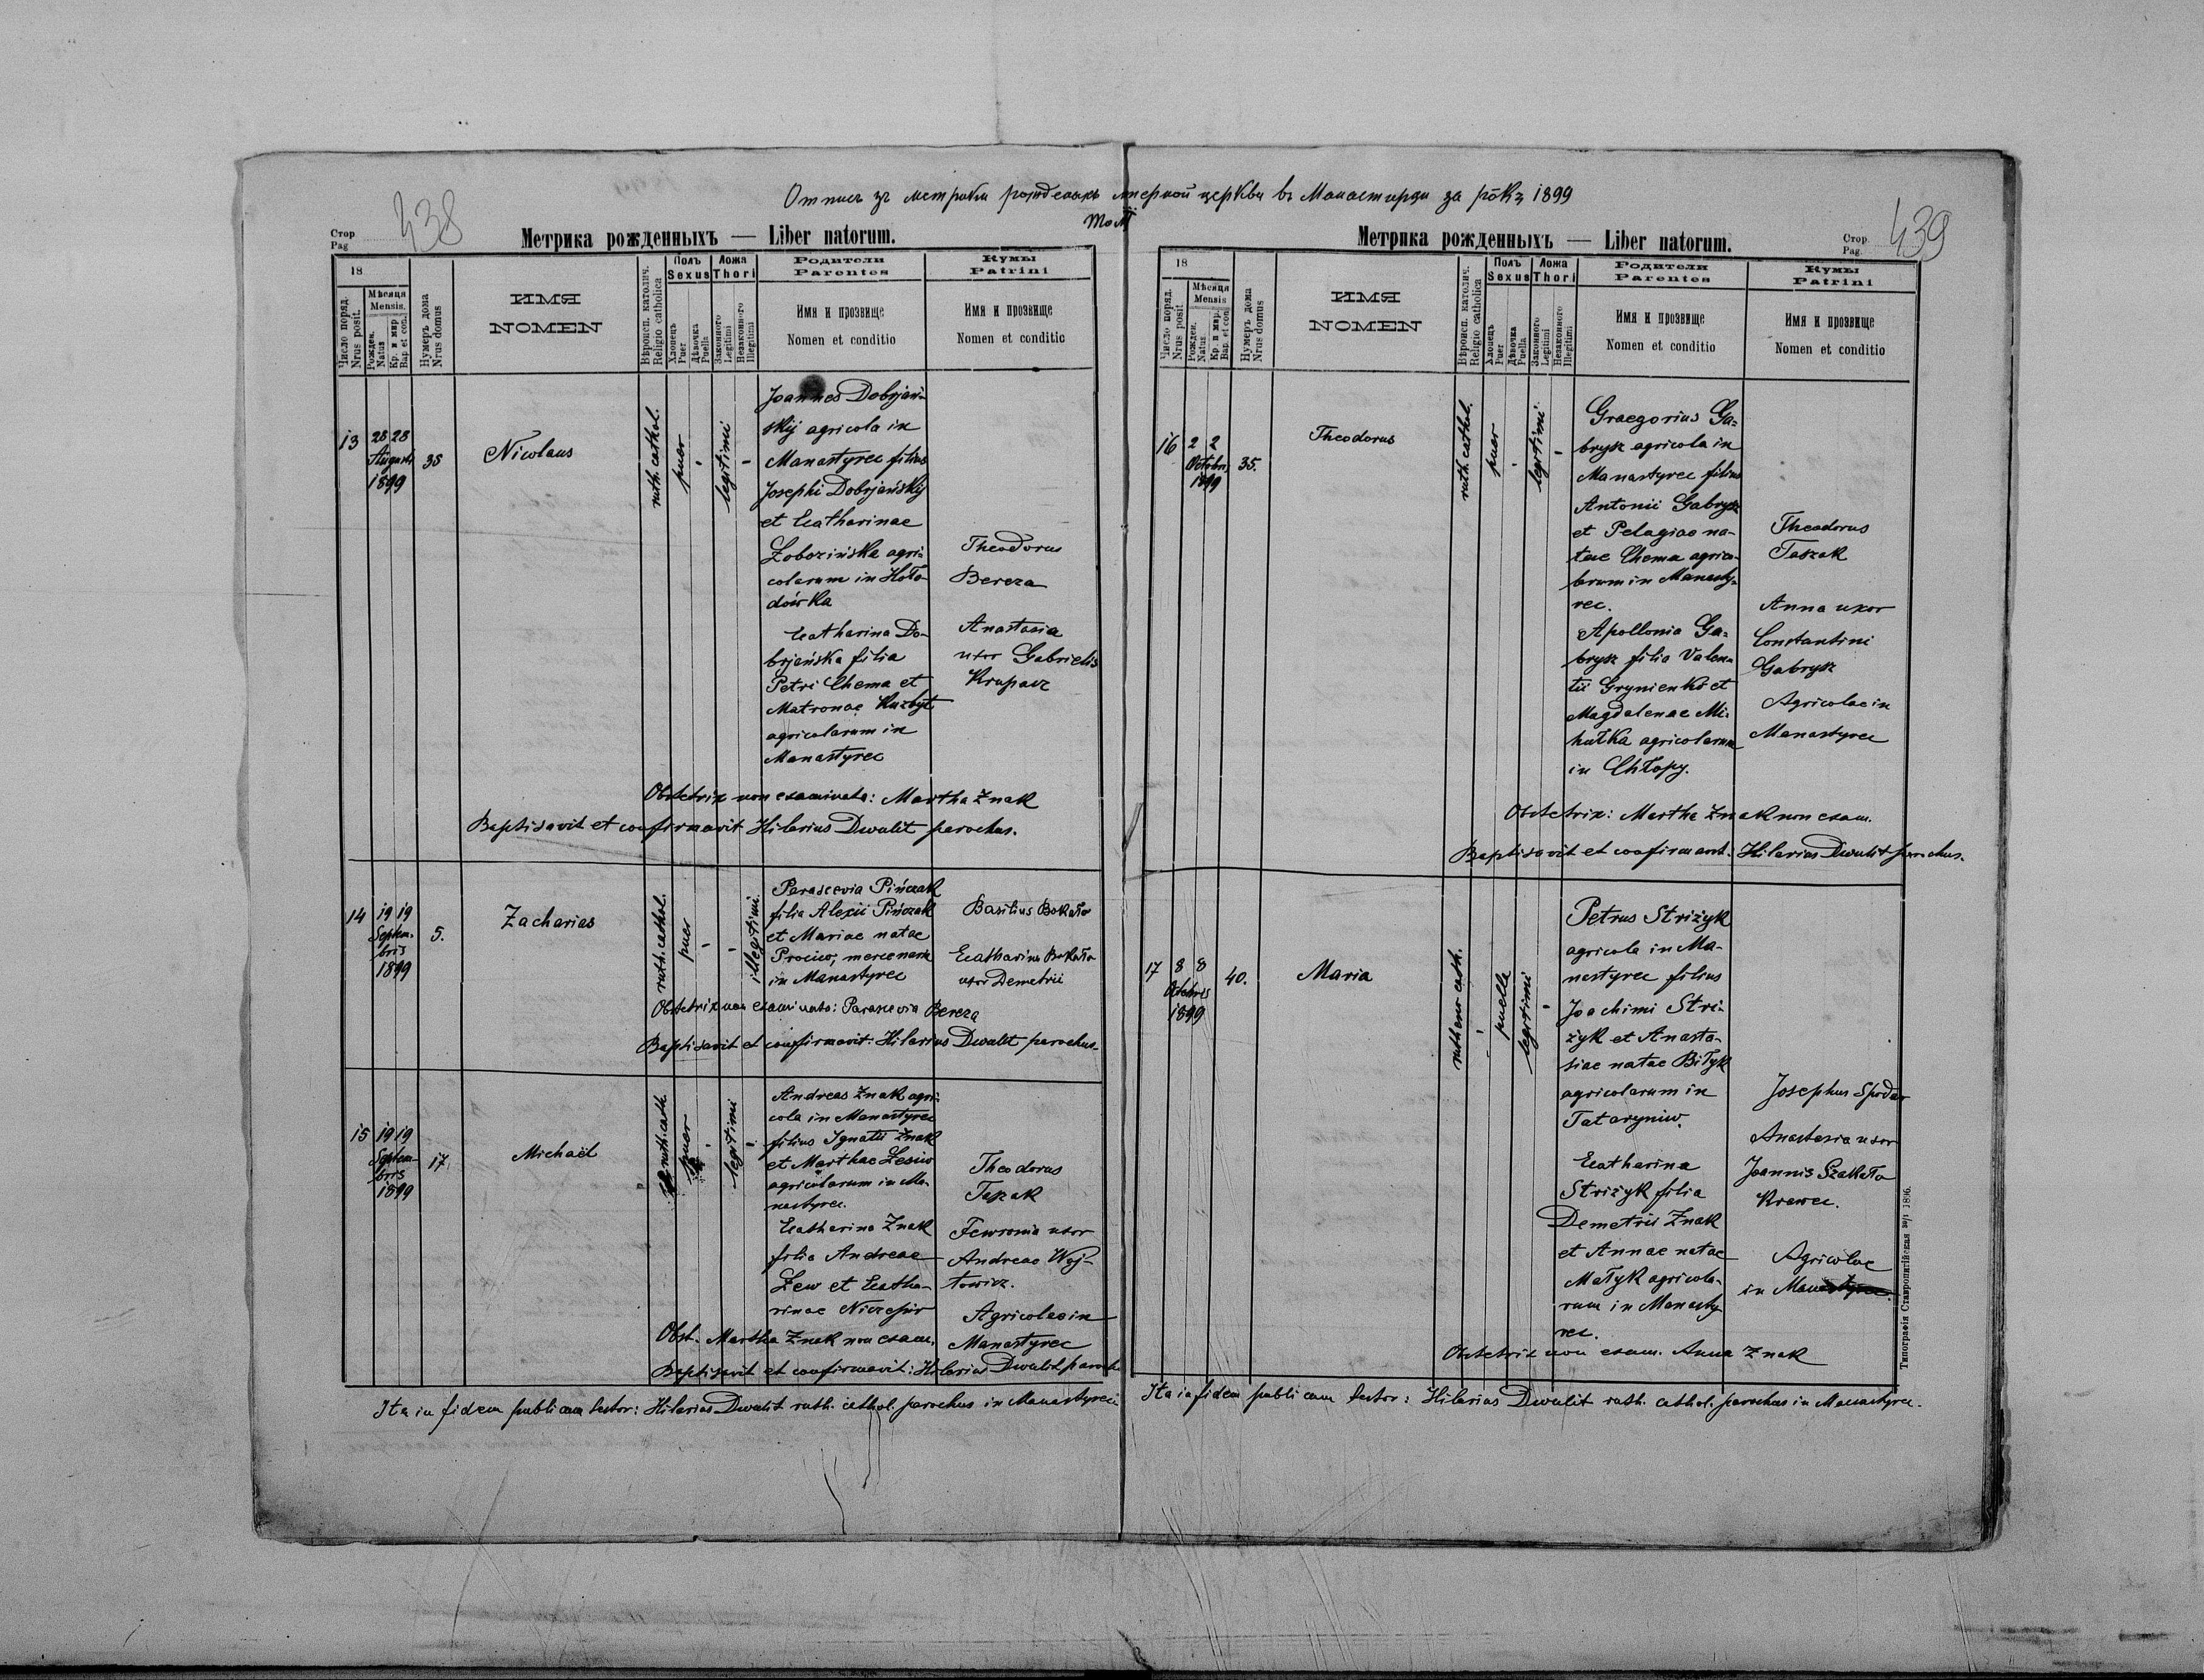 Отпись зъ метрики рожденыхъ матерной церкви въ Манастирци за рôкъ 1899
438
Стор
Pag
Метрика рожденныхъ — Liber natorum.
18
Число поряд.
Nrus posit.
Мѣсяца
Mensis.
Рожден.
Natus
Кр. и мир.
Bap. et con.
Нумеръ дома
Nrus domus
ИМЯ
NOMEN
Вѣроисп. католич.
Religio catholica
Полъ
Sexus
Хлопецъ
Puer
Дѣвочка
Puella
Ложа
Thori
Законного
Legitimi
Незаконного
Illegitimi
Родители
Parentes
Имя и прозвище
Nomen et conditio
Кумы
Patrini
Имя и прозвище
Nomen et conditio
13
28 28
Augusti
1899
38
Nicolaus
ruth. cathol.
puer
-
legitimi
-
Joannes Dobrjań-
skij agricola in
Manastyrec filius
Josephi Dobrjańskij
et Catharinae
Łobozińska agri-
colarum in Hoło-
dówka
Catharina Do-
brjańska filia
Petri Chema et
Matronae Kuzbyt
agricolarum in
Manastyrec
Theodorus
Bereza
Anastasia
uxor Gabrielis
Krupacz
Obstetrix non examinata: Martha Znak
Baptisavit et confirmavit Hilarius Dwulit parochus.
14
19 19
Septem-
bris
1899
5.
Zacharias
ruth. cathol.
puer
-
-
illegitimi.
Parascevia Pińczak
filia Alexii Pińczak
et Mariae natae
Prociw, mercenaria
in Manastyrec
Basilius Bokało
Catharina Bokało
uxor Demetrii
Obstetrix non examinata: Parascevia Bereza
Baptisavit et confirmavit: Hilarius Dwulit parochus.
15
19 19
Septem-
bris
1899
17.
Michaël
ruth. cath.
puer
-
legitimi
-
Andreas Znak agri-
cola in Manastyrec
filius Ignatii Znak
et Marthae Łesiw
agricolarum in Ma-
nastyrec.
Catharina Znak
filia Andreae
Łew et Catha-
rinae Niczepir
Theodorus
Taszak
Fewronia uxor
Andreae Woj-
towicz.
Agricolae in
Manastyrec
Obst. Martha Znak non exam.
Baptisavit et confirmavit: Hilarius Dwulit paroch.
Ita in fidem publicam testor: Hilarius Dwulit ruth. cathol. parochus in Manastyrec.
439
Метрика рожденныхъ — Liber natorum.
Стор
Pag.
18
Число поряд.
Nrus posit
Мѣсяца
Mensis
Рожден.
Natus
Кр. и мир.
Bap. et con
Нумеръ дома
Nrus domus
ИМЯ
NOMEN
Вѣроисп. католич.
Religio catholica
Полъ
Sexus
Хлопецъ
Puer
Дѣвочка
Puella
Ложа
Thori
Законного
Legitimi
Незаконного
Illegitimi
Родители
Parentes
Имя и прозвище
Nomen et conditio
Кумы
Patrini
Имя и прозвище
Nomen et conditio
16
2 2
Octobris
1899
35.
Theodorus
ruth. cathol.
puer
-
legitimi
-
Graegorius Ga-
brysz agricola in
Manastyrec filius
Antonii Gabrysz
et Pelagiae na-
tae Chema agrico-
larum in Manasty-
rec.
Apollonia Ga-
brysz filia Valen-
tii Grynienko et
Magdalenae Mi-
hułka agricolarum
in Chłopy.
Theodorus
Taszak
Anna uxor
Constantini
Gabrysz
Agricolae in
Manastyrec
Obstetrix: Martha Znak non exam.
Baptisavit et confirmavit. Hilarius Dwulit parochus.
17
8 8
Octobris
1899
40.
Maria
rutheno cath.
-
puella
legitimi
-
Petrus Striżyk
agricola in Ma-
nastyrec filius
Joachimi Stri-
żyk et Anasta-
siae natae Biłyk
agricolarum in
Tataryniw.
Catharina
Striżyk filia
Demetrii Znak
et Annae natae
Małyk agricola-
rum in Manasty-
rec.
Josephus Spodar
Anastasia uxor
Joannis Szakało
Krawec.
Agricolae
in Manastyrec.
Obstetrix non exam. Anna Znak
Ita in fidem publicam testor: Hilarius Dwulit ruth. cathol. parochus in Manastyrec.
Типографія Ставропигійская 1896.